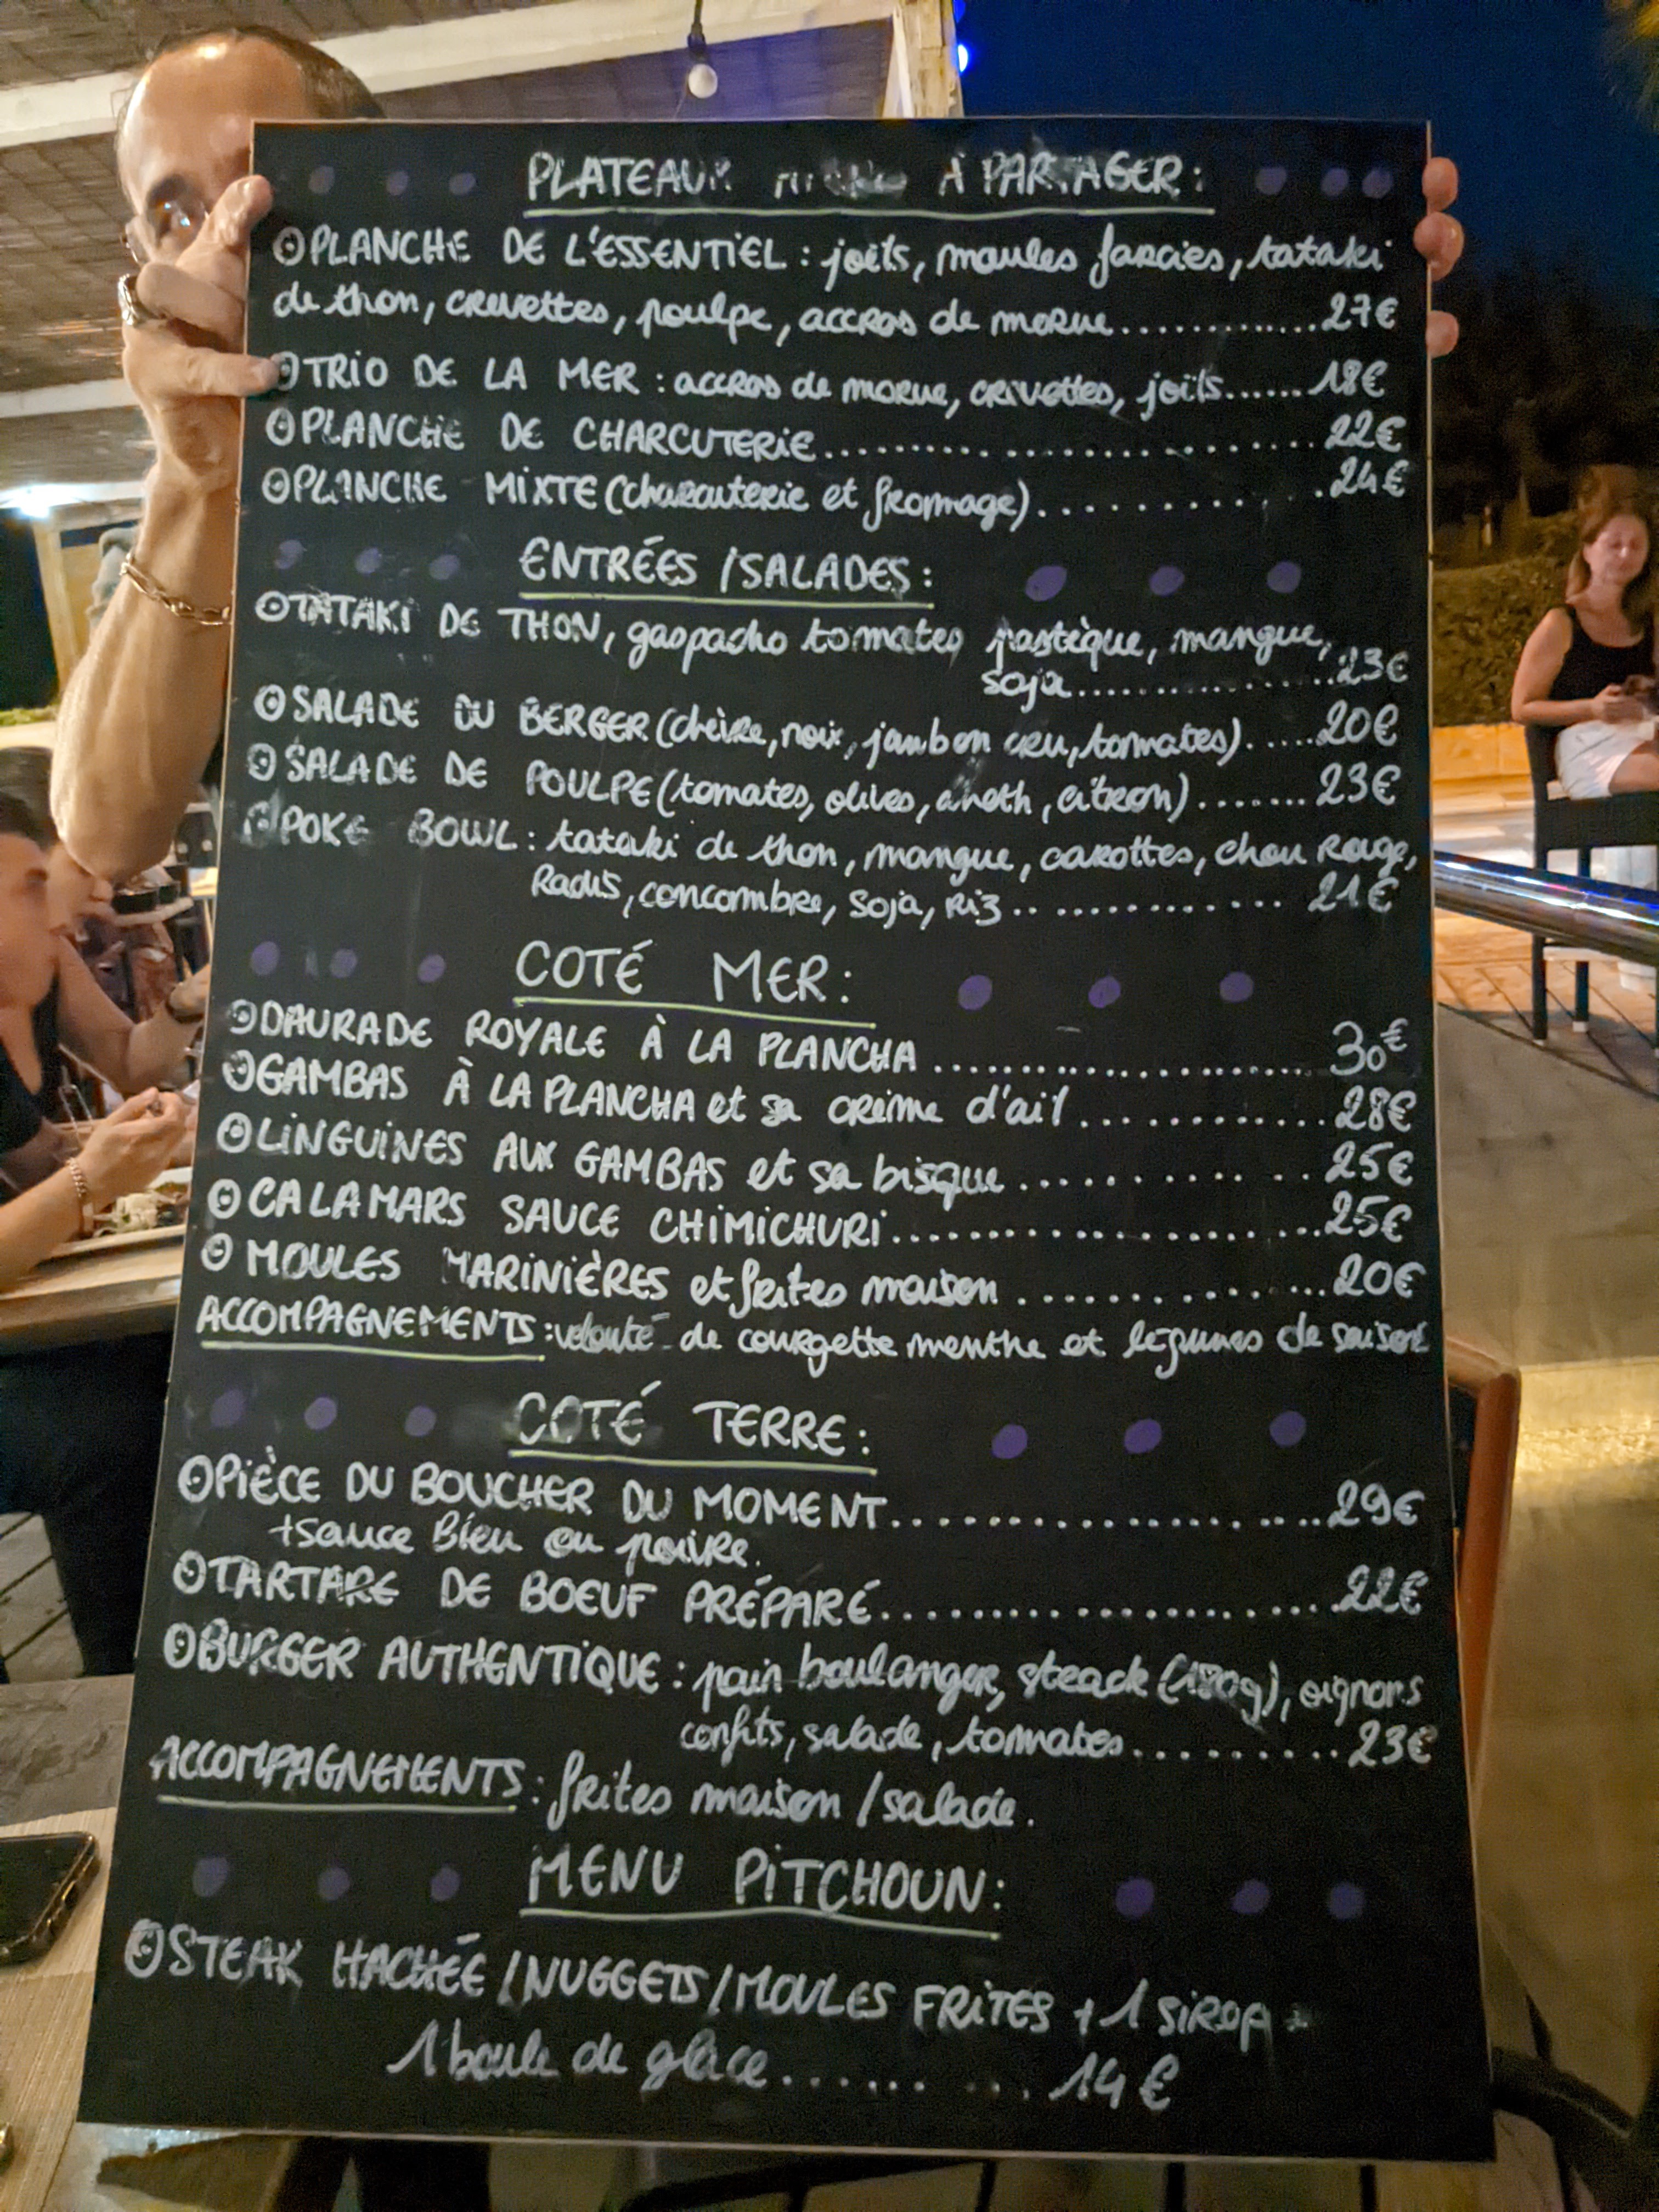 PLATEAUX À PARTAGER:
PLANCHE DE L'ESSENTIEL : joëls, moules farcies, tataki
de thon, crevettes, poulpe, accras de morue.............27€
TRIO DE LA MER : accras de morue, crevettes, joëls......18€
PLANCHE DE CHARCUTERIE..........................22€
PLANCHE MIXTE (charcuterie et fromage)............24€
ENTRÉES / SALADES :
TATAKI DE THON, gaspacho tomates pastèque, mangue,
soja.................23€
SALADE DU BERGER (chèvre, noix, jambon cru, tomates)......20€
SALADE DE POULPE (tomates, olives, aneth, citron)........23€
POKE BOWL : tataki de thon, mangue, carottes, chou Rouge,
Radis, concombre, soja, Riz.............. 21€
COTÉ MER :
DAURADE ROYALE À LA PLANCHA........................30€
GAMBAS À LA PLANCHA et sa crème d'ail.............28€
LINGUINES AUX GAMBAS et sa bisque.............25€
CALAMARS SAUCE CHIMICHURI......................25€
MOULES MARINIÈRES et frites maison................20€
ACCOMPAGNEMENTS : velouté de courgette menthe et légumes de saison
COTÉ TERRE :
PIÈCE DU BOUCHER DU MOMENT......................29€
+sauce Bleu ou poivre.
TARTARE DE BOEUF PRÉPARÉ.......................22€
BURGER AUTHENTIQUE : pain boulanger, steack (180g), oignons
confits, salade, tomates..........23€
ACCOMPAGNEMENTS : frites maison / salade.
MENU PITCHOUN :
STEAK HACHÉE / NUGGETS / MOULES FRITES + 1 SIROP +
1 boule de glace......... 14€